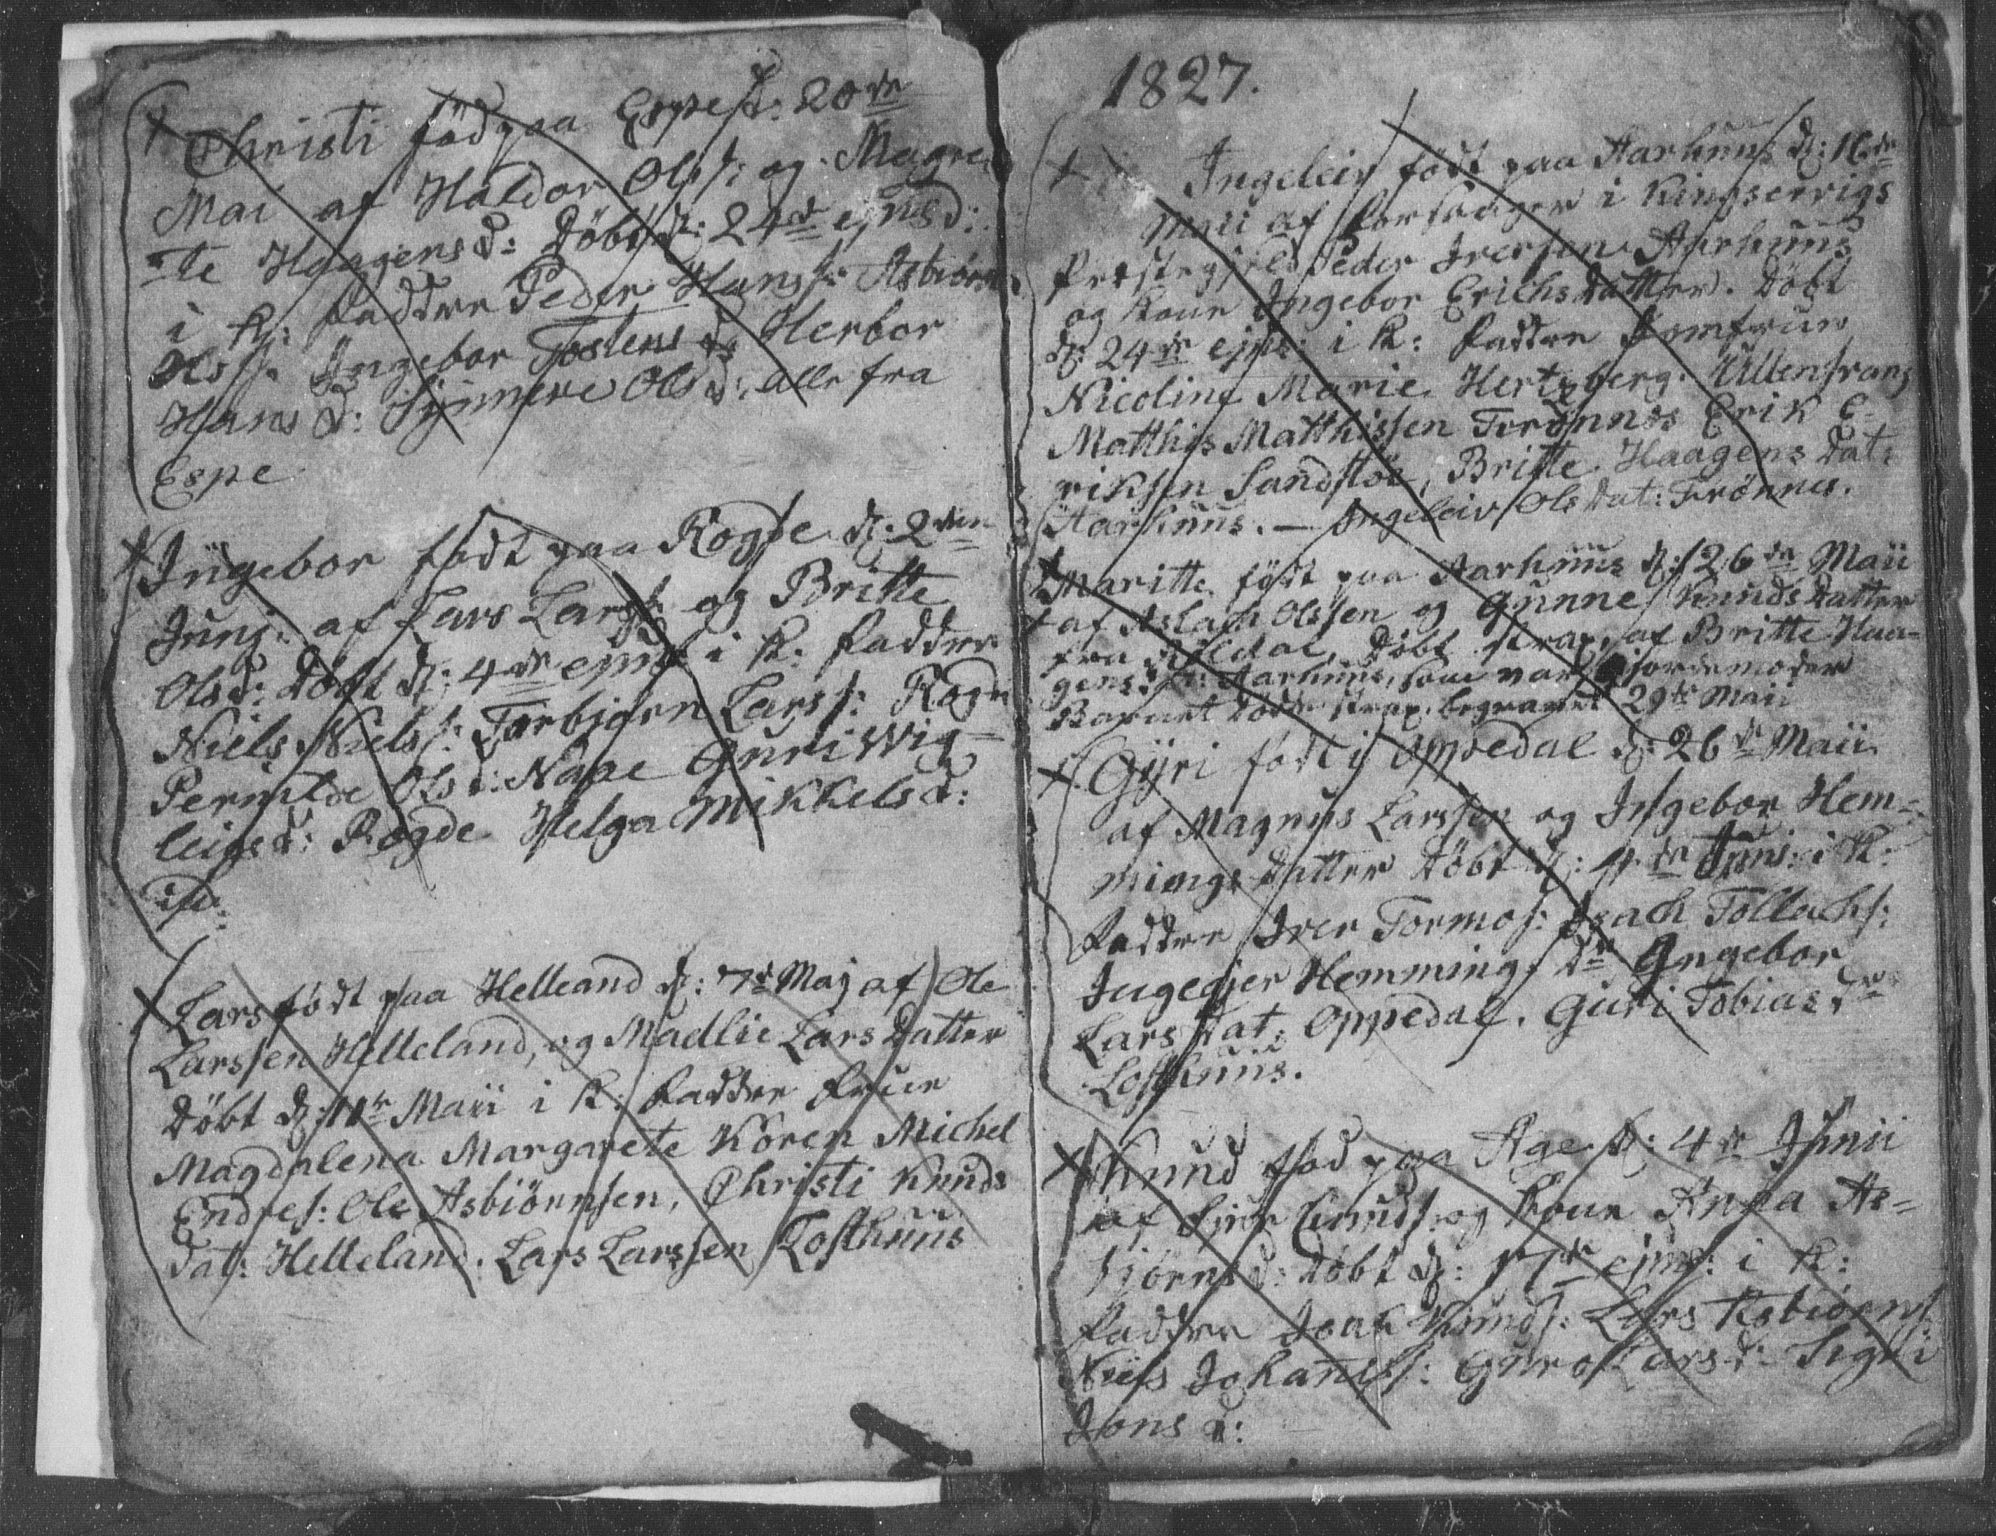 Christi föd paa Espe d: 20de
Mai af Haldor Olss: og Magre-
te Haagensd: Döbt d: 24de ejusd:
i K: Faddere Peder Hanss: Asbiørn
Olss: Ingebor Tostensd: Herbor
Hansd: Synneve Olsd: alle fra
Espe
Ingebor født paa Rogde d: 2den
Junj: af Lars Larss: og Britte
Olsd: Døbt d: 4de ejusd: i K: Faddere
Niels Nielss: Torbjørn Larss: Rogde
Pernilde Olsd: Nape Guri Wig-
leigsd: Rogde Helga Mikkelsd:
Lars født paa Helleland d: 7de Maj af Ole
Larssen Helleland, og Madlie Larsdatter
Døbt d: 11te Maii i K: Faddere Frue
Magdalena Margarete Koren Michel
Endres: Ole Asbiørnsen, Christi Knuds
dat: Helleland. Lars Larssen Lofthuus
1827.
Ingeleiv født paa Aarhuus d: 16de
Maii af Forsanger i Kingservigs
Præstegjeld Peder Iversen Aarhuus
og Kone Ingebor Erichsdatter. Døbt
d: 24de ejusd: i K: Faddere Jomfrue
Nicoline Marie Hertzberg. Ullensvang
Matthis Matthissen Frønnes Erik E-
riksen Sandstøe, Britte Haagens Dat:
Aarhuus. — Ingeleiv Olsdat: Frønnes.
Maritte født paa Aarhuus d: 26de Maii
af Aslach Olssen og Gunne Knudsdatter
fra Røldal, Døbt strax, af Britte Haa-
gensdt: Aarhuus, som var Gjordemoder
Barnet døde strax. begravet 29de Maii
Gyri født i Oppedal d: 26de Maii
af Magnus Larssen og Ingebor Hem-
mings datter Døbt d: 4de Juni: i K:
Faddere Iver Tormos: Isach Tollachs:
Ingegjer Hemmings dr Ingebor
Lars dat: Oppedal. Guri Tobias dr
Lofthuus.
Knud fød paa Age d: 4de Junii
af Siur Cnuds: og Kone Anna As-
bjørnsd: Døbt d: 17de ejusd: i K:
Faddere Isak Knuds: Lars Asbiørns:
Niels Johanss: Guro Larsd: Signi
Jons d: